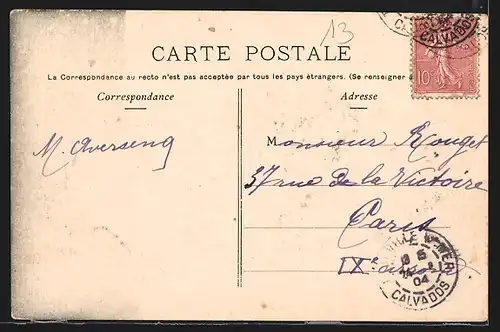 13
CALVADOS
CARTE POSTALE
10
La Correspondance au recto n'est pas acceptée par tous les pays étrangers. (Se renseigner
Correspondance
Adresse
M. Averseng
Monsieur Rouget
37 rue de la Victoire
Paris
IXe
VILLE MER
04
CALVADOS